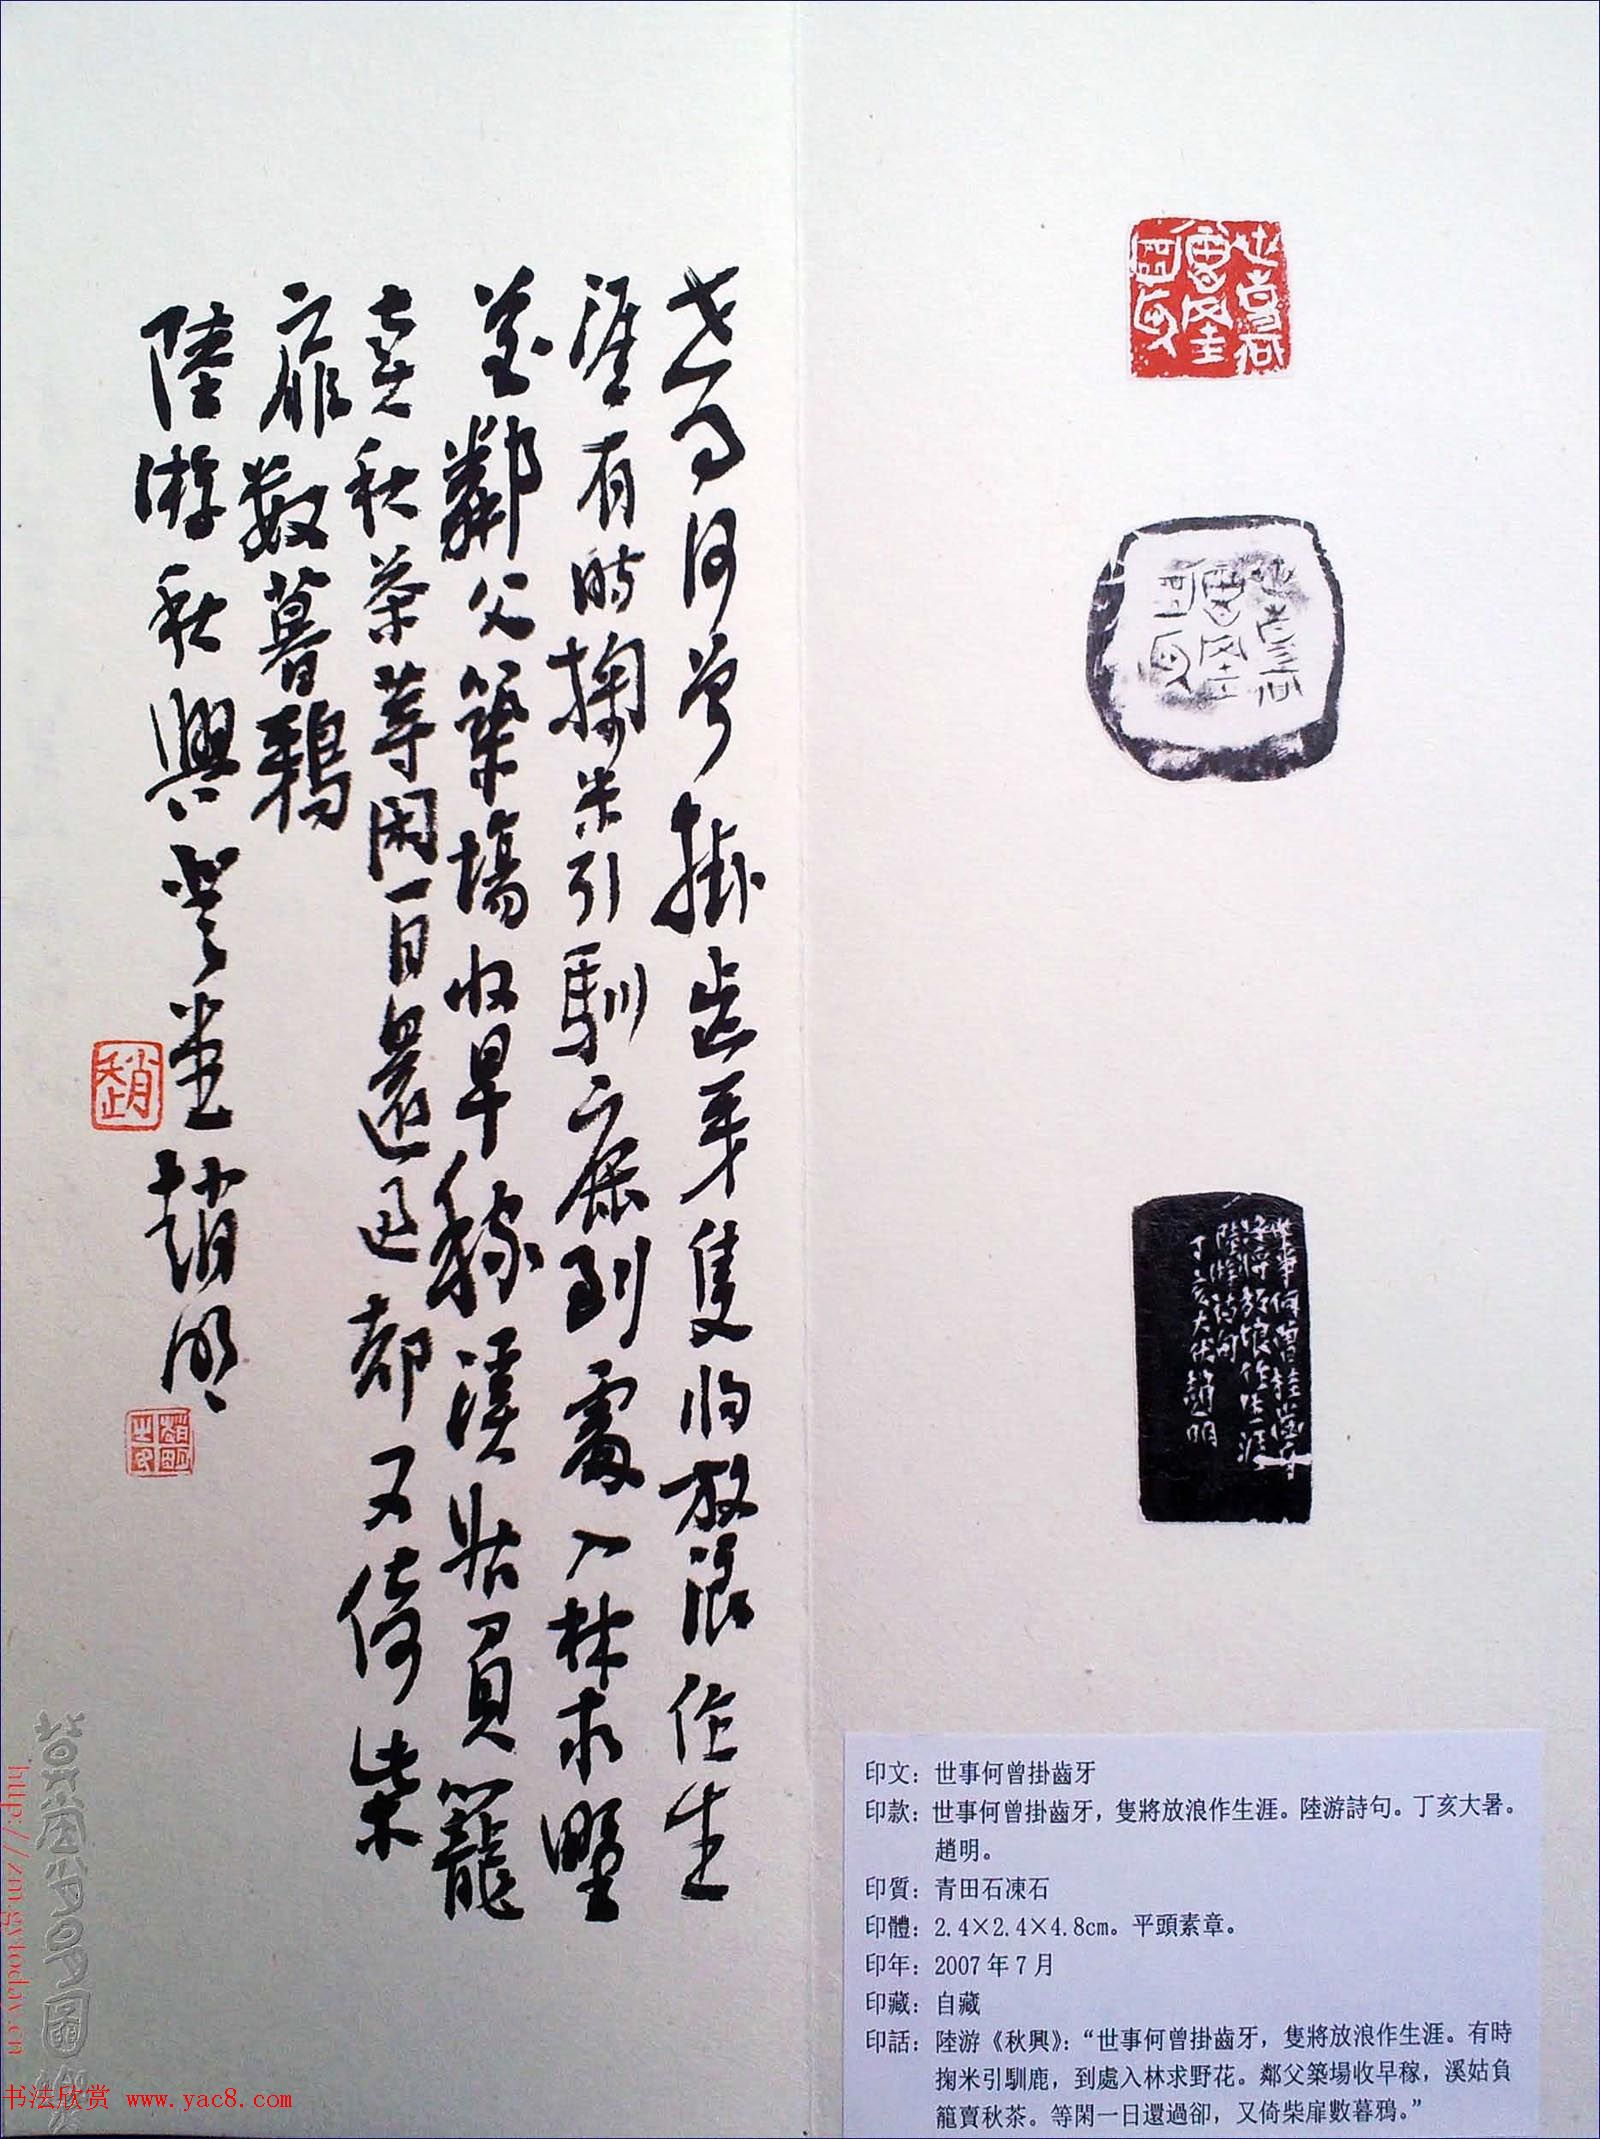 世事何
曾掛
齒牙
世事何曾掛齒牙
隻將放浪作生涯
陸游詩句
丁亥大趙明
世事何曾掛齒牙隻將放浪作生
涯有時掬米引馴鹿到處入林求野
花鄰父築場收早稼溪姑負籠
賣秋茶等閑一日還過却又倚柴
扉數暮鴉
陸游秋興堂趙明
趙
印文：世事何曾掛齒牙
印款：世事何曾掛齒牙，隻將放浪作生涯。陸游詩句。丁亥大暑。
趙明。
印質：青田石凍石
印體：2.4×2.4×4.8cm。平頭素章。
印年：2007年7月
印藏：自藏
印話：陸游《秋興》：“世事何曾掛齒牙，隻將放浪作生涯。有時
掬米引馴鹿，到處入林求野花。鄰父築場收早稼，溪姑負
籠賣秋茶。等閑一日還過卻，又倚柴扉數暮鴉。”
http://zm.gytoday.cn
书法欣赏 www.yac8.com